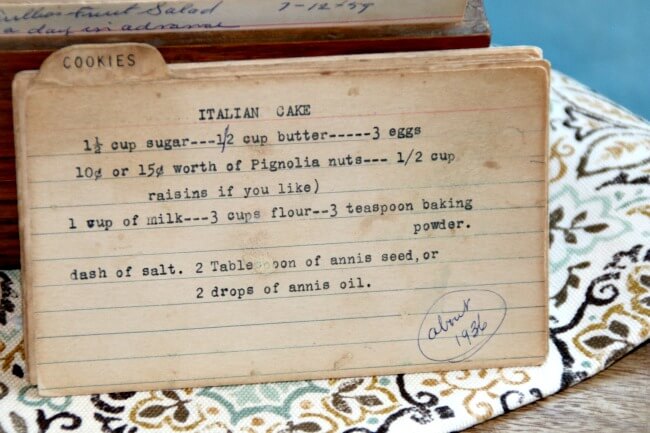 Fruit Salad 7-12-59
a day in advance
COOKIES
ITALIAN CAKE
1½ cup sugar---1/2 cup butter-----3 eggs
10¢ or 15¢ worth of Pignolia nuts--- 1/2 cup
raisins if you like)
1 cup of milk---3 cups flour--3 teaspoon baking
powder.
dash of salt. 2 Tablespoon of annis seed,or
2 drops of annis oil.
about
1936